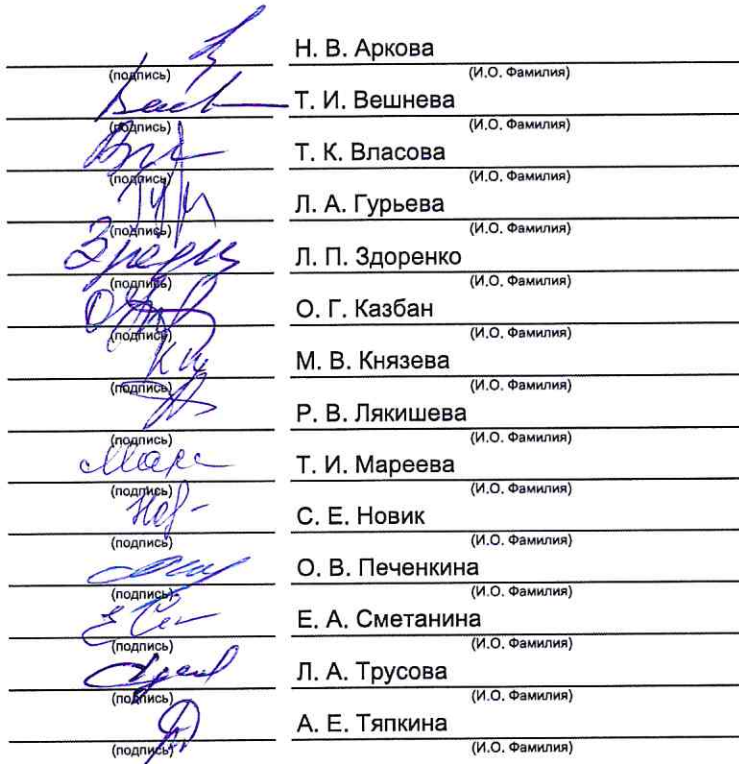 Н. В. Аркова
(подпись) (И.О. Фамилия)
Т. И. Вешнева
(подпись) (И.О. Фамилия)
Т. К. Власова
(подпись) (И.О. Фамилия)
Л. А. Гурьева
(подпись) (И.О. Фамилия)
Л. П. Здоренко
(подпись) (И.О. Фамилия)
О. Г. Казбан
(подпись) (И.О. Фамилия)
М. В. Князева
(подпись) (И.О. Фамилия)
Р. В. Лякишева
(подпись) (И.О. Фамилия)
Т. И. Мареева
(подпись) (И.О. Фамилия)
С. Е. Новик
(подпись) (И.О. Фамилия)
О. В. Печенкина
(подпись) (И.О. Фамилия)
Е. А. Сметанина
(подпись) (И.О. Фамилия)
Л. А. Трусова
(подпись) (И.О. Фамилия)
А. Е. Тяпкина
(подпись) (И.О. Фамилия)